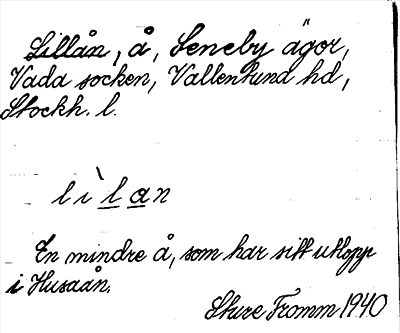 Lillån, å, Seneby ägor,
Vada socken, Vallentund hd,
Stockh. l.
lìlan
En mindre å, som har sitt utlopp
i Husaån.
Sture Fromm 1940